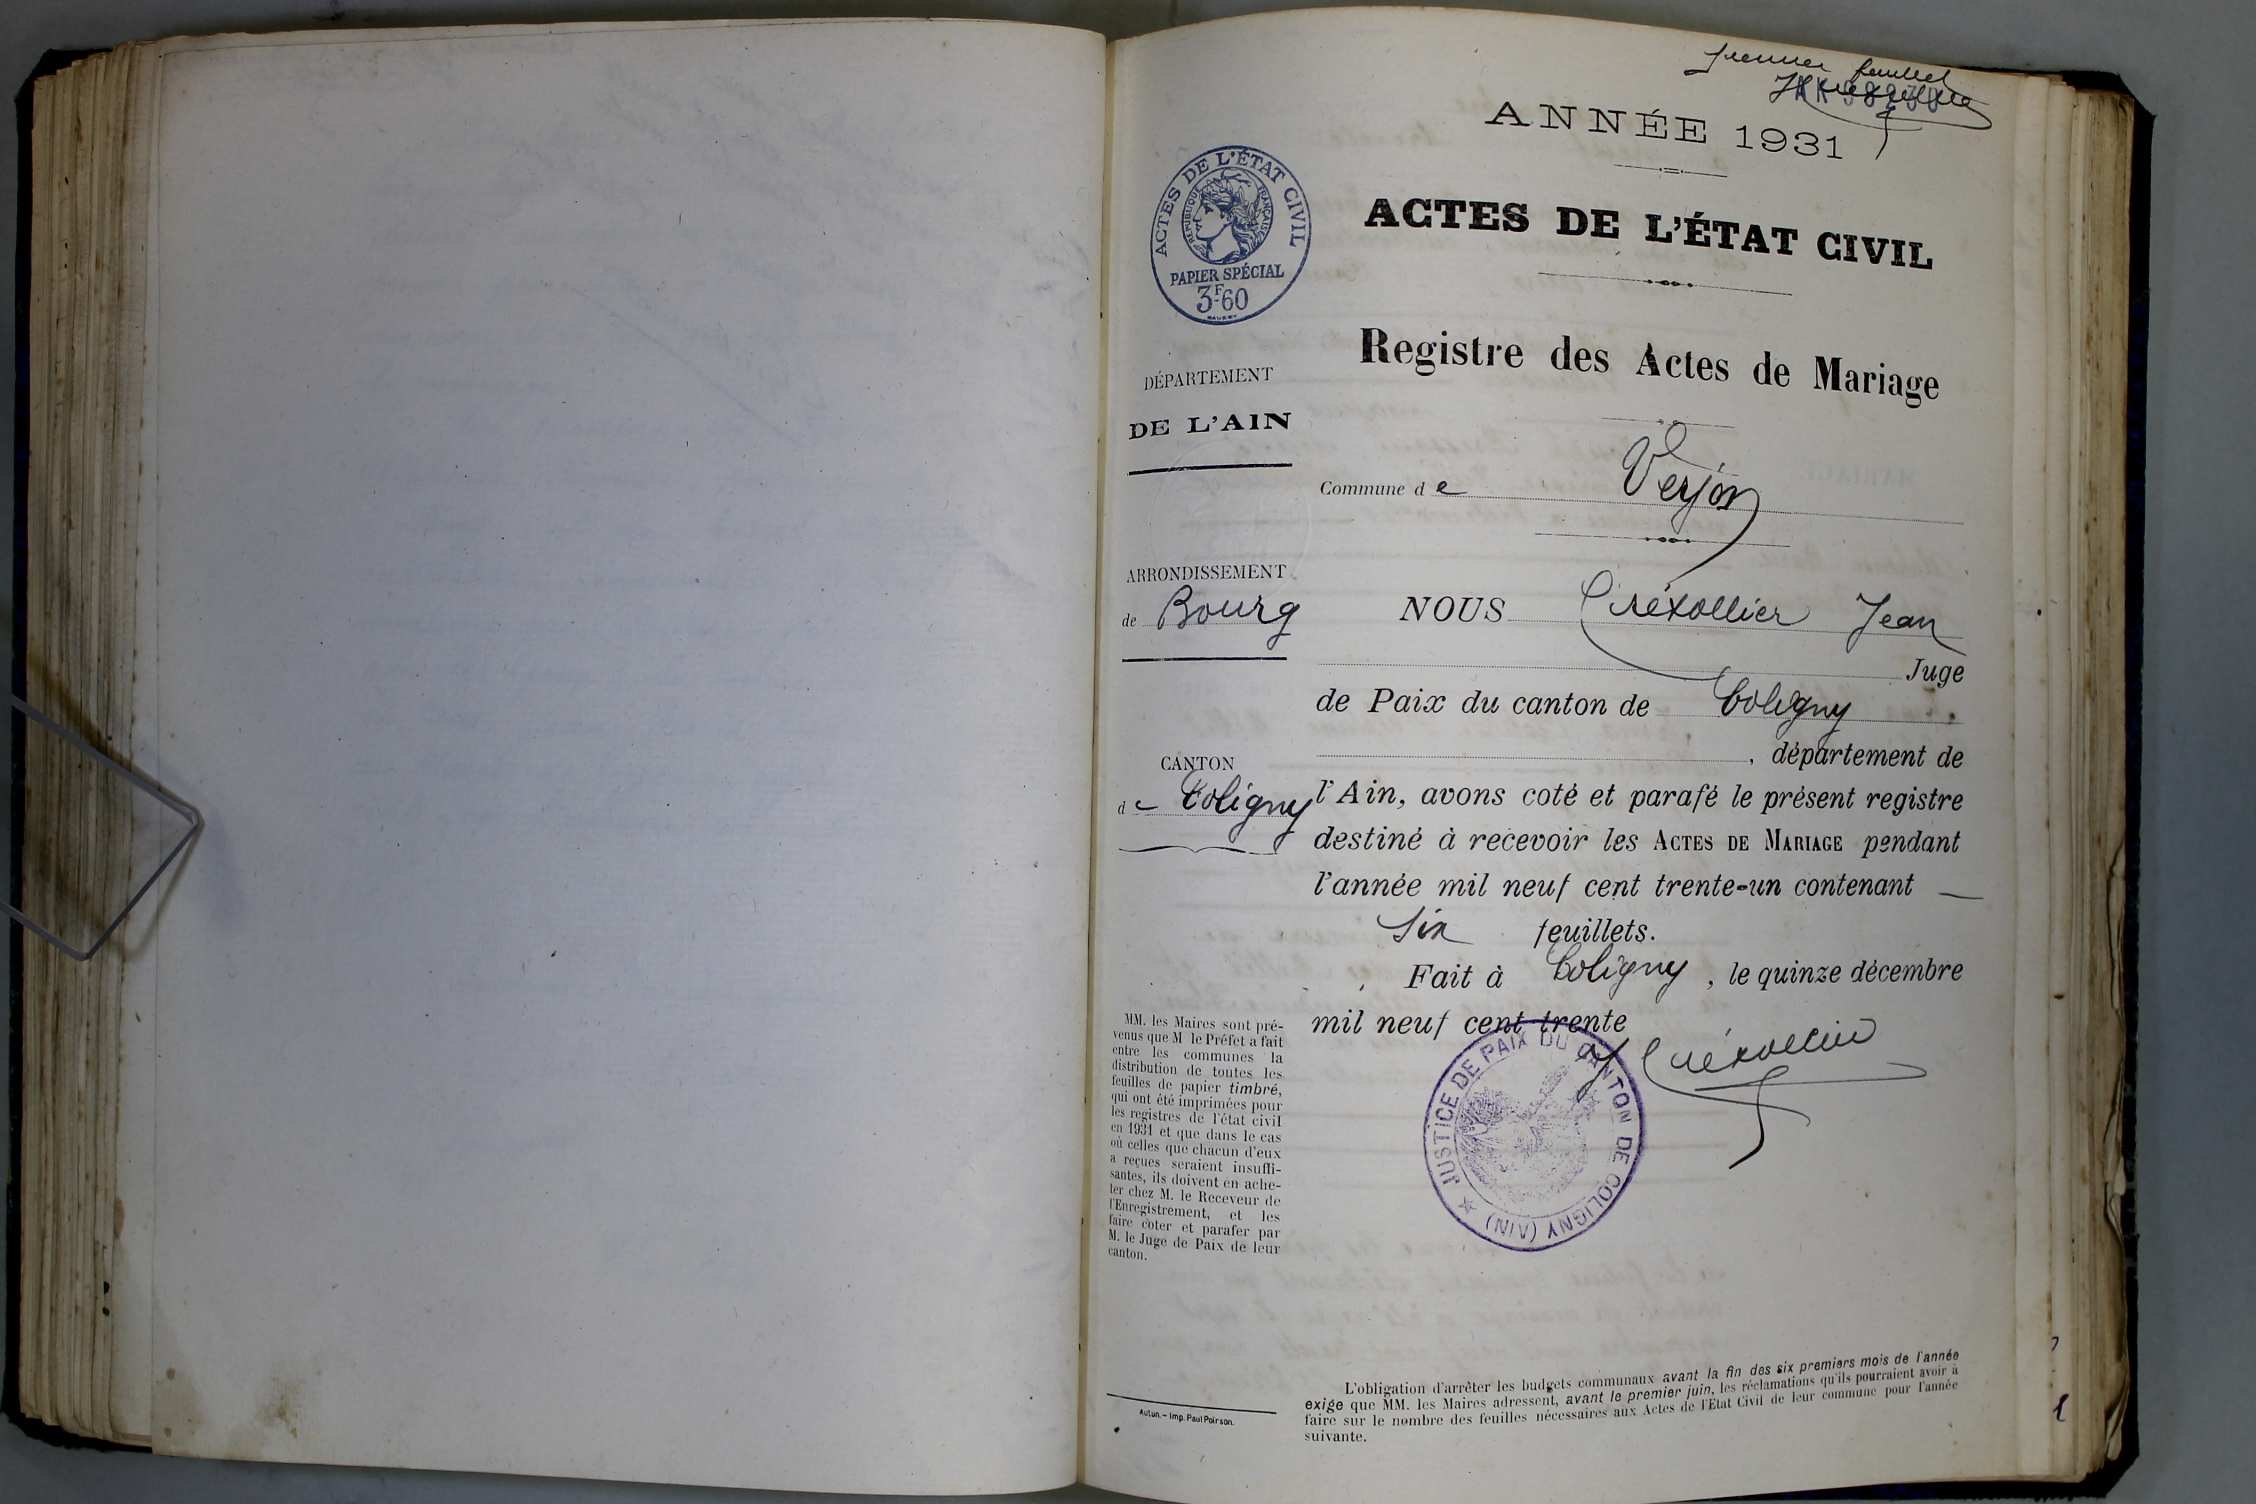 premier feuillet
ANNÉE 1931
ACTES DE L'ÉTAT CIVIL
RÉPUBLIQUE FRANÇAISE
PAPIER SPÉCIAL
3F60
ACTES DE L'ÉTAT CIVIL
Registre des Actes de Mariage
DÉPARTEMENT
DE L'AIN
Commune de Verjon
ARRONDISSEMENT
de Bourg
NOUS Créxollier Jean
Juge
de Paix du canton de Coligny
, département de
CANTON
de Coligny
l'Ain, avons coté et parafé le présent registre
destiné à recevoir les ACTES DE MARIAGE pendant
l'année mil neuf cent trente-un contenant —
six feuillets.
Fait à Coligny, le quinze décembre
mil neuf cent trente
Créxollier
JUSTICE DE PAIX DU CANTON DE COLIGNY (AIN)
MM. les Maires sont pré-
venus que M le Préfet a fait
entre les communes la
distribution de toutes les
feuilles de papier timbré,
qui ont été imprimées pour
les registres de l'état civil
en 1931 et que dans le cas
où celles que chacun d'eux
a reçues seraient insuffi-
santes, ils doivent en ache-
ter chez M. le Receveur de
l'Enregistrement, et les
faire coter et parafer par
M. le Juge de Paix de leur
canton.
Autun. – Imp. Paul Poirson.
L'obligation d'arrêter les budgets communaux avant la fin des six premiers mois de l'année
exige que MM. les Maires adressent, avant le premier juin, les réclamations qu'ils pourraient avoir à
faire sur le nombre des feuilles nécessaires aux Actes de l'Etat Civil de leur commune pour l'année
suivante.